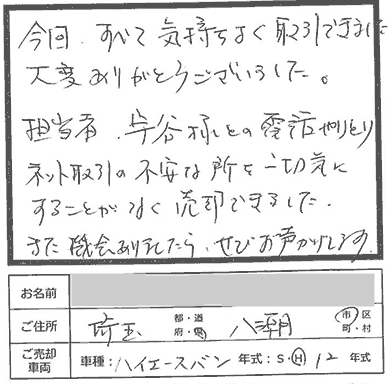 今回、すべて気持ちよく取引できました
大変ありがとうございました。
担当者、守谷様との電話やりとり
ネット取引の不安な所を一切気に
することがなく売却できました。
また機会ありましたら、ぜひお声かけします。
お名前
ご住所 埼玉 都・道 府・県 八潮 市・区 町・村
ご売却車両 車種：ハイエースバン 年式：S・H 12 年式